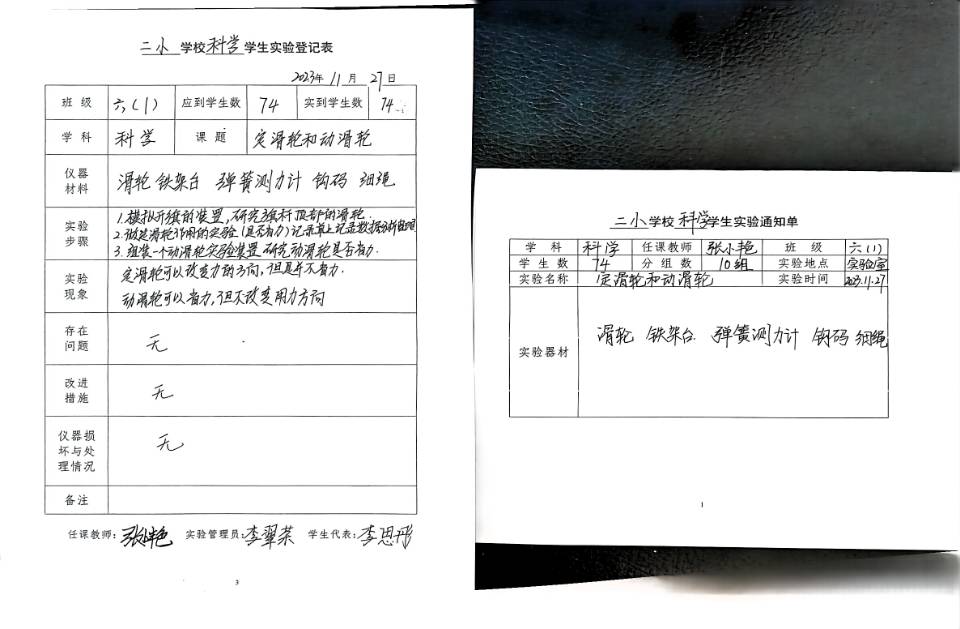 二小 学校 科学 学生实验登记表
2023年 11 月 27 日
班 级 六（1） 应到学生数 74 实到学生数 74
学 科 科学 课 题 定滑轮和动滑轮
仪器材料 滑轮 铁架台 弹簧测力计 钩码 细绳
实验步骤
1.模拟升旗的装置,研究旗杆顶部的滑轮.
2.做定滑轮作用的实验(是否省力)记录单上记录数据
3.组装一个动滑轮实验装置 研究动滑轮是否省力.
实验现象
定滑轮可以改变力的方向,但是并不省力.
动滑轮可以省力,但不改变用力方向
存在问题 无
改进措施 无
仪器损坏与处理情况 无
备注
任课教师: 张小艳 实验管理员: 李翠荣 学生代表: 李思彤
3
二小 学校 科学 学生实验通知单
学 科 科学 任课教师 张小艳 班 级 六(1)
学 生 数 74 分 组 数 10组 实验地点 实验室
实验名称 定滑轮和动滑轮 实验时间 2023.11.27
实验器材 滑轮 铁架台 弹簧测力计 钩码 细绳
1